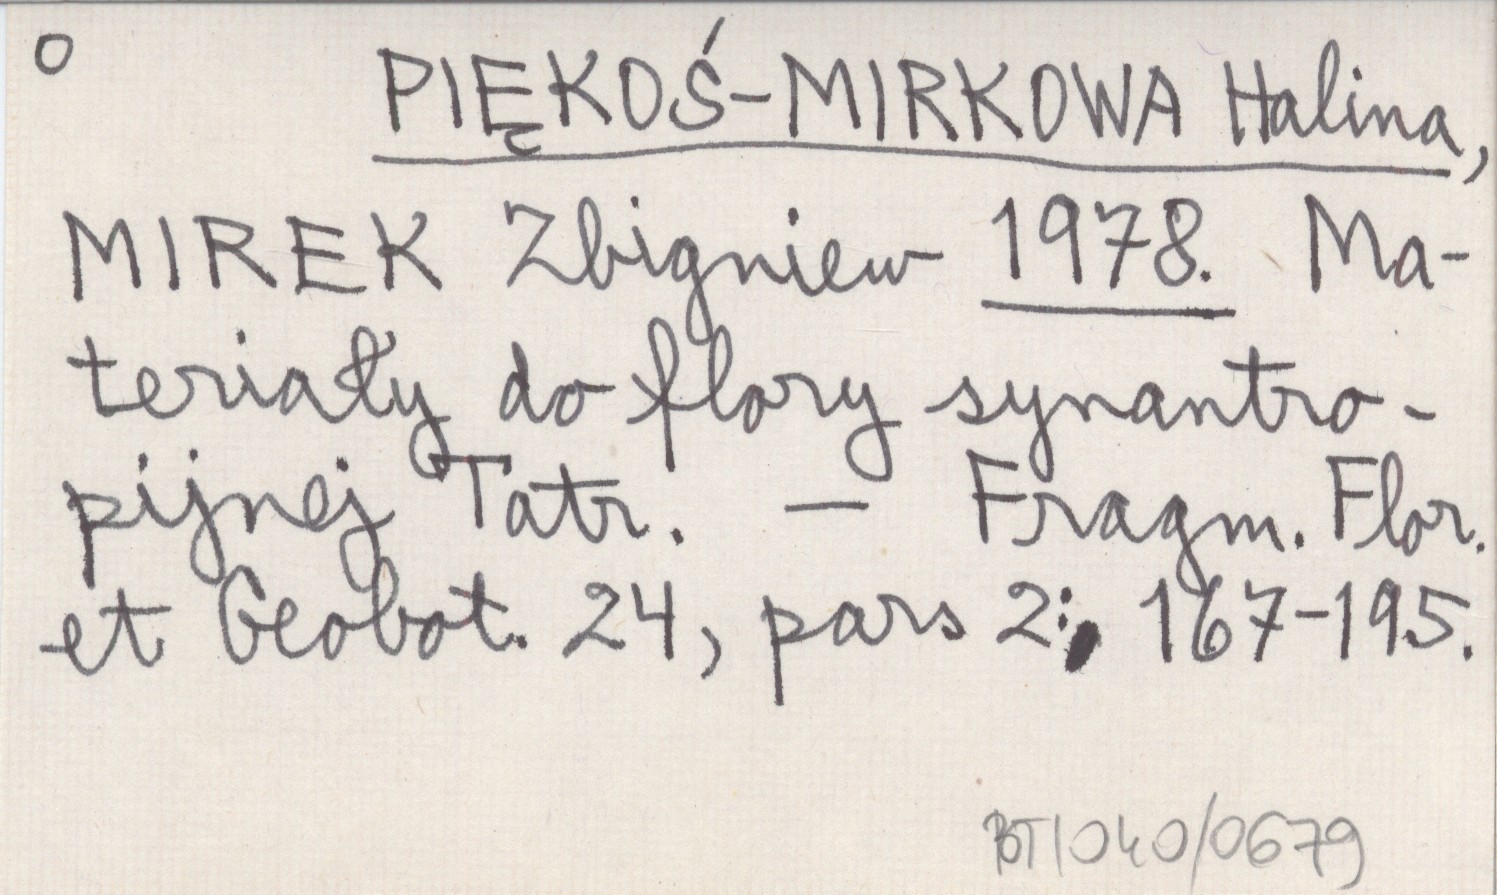 O PIĘKOŚ-MIRKOWA Halina,
MIREK Zbigniew 1978. Ma-
teriały do flory synantro-
pijnej Tatr. — Fragm. Flor.
et Geobot. 24, pars 2: 167-195.
BT/040/0679